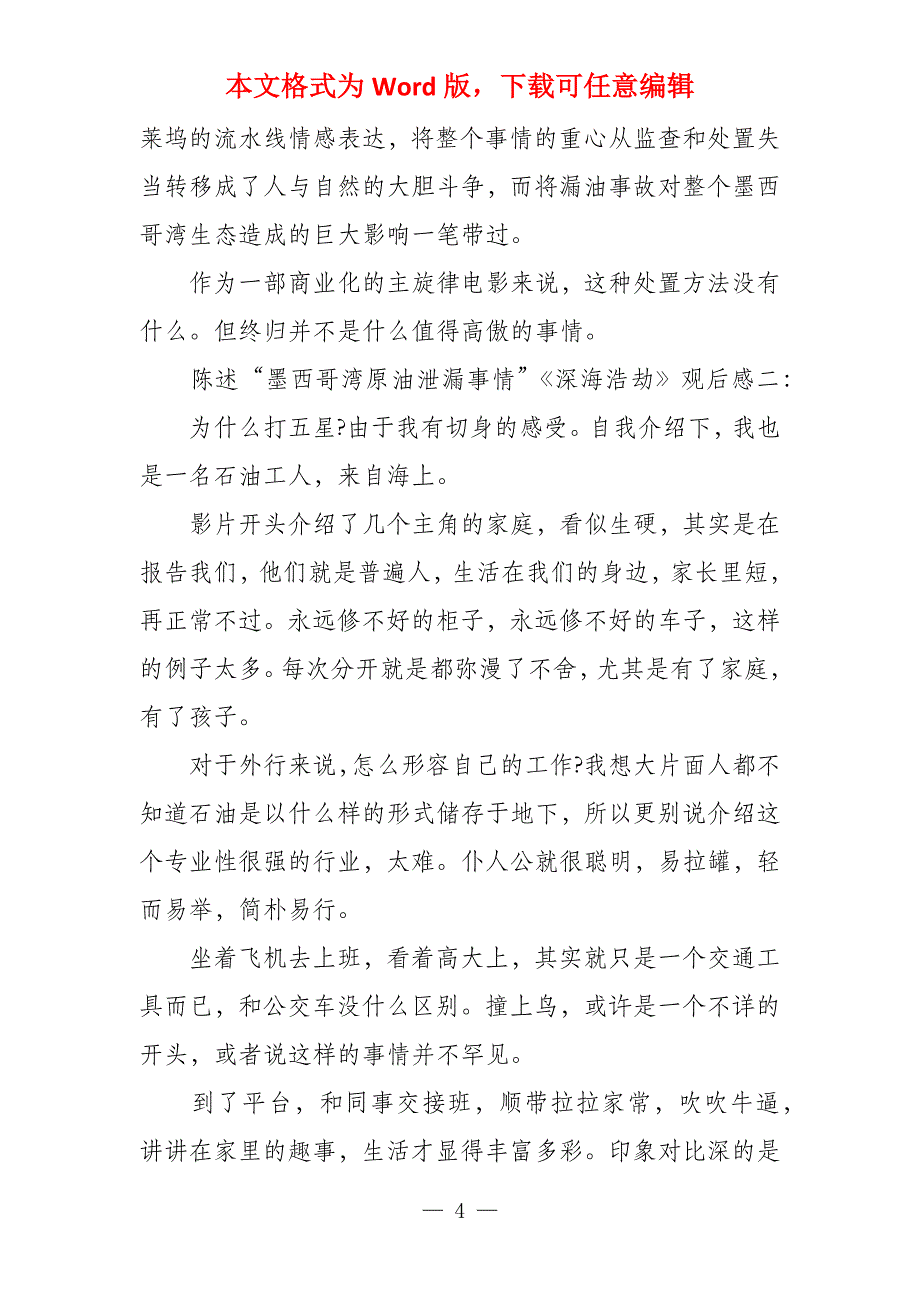 本文格式为 Word 版，下载可任意编辑
莱坞的流水线情感表达，将整个事情的重心从监查和处置失
当转移成了人与自然的大胆斗争，而将漏油事故对整个墨西
哥湾生态造成的巨大影响一笔带过。
作为一部商业化的主旋律电影来说，这种处置方法没有
什么。但终归并不是什么值得高傲的事情。
陈述“墨西哥湾原油泄漏事情”《深海浩劫》观后感二：
为什么打五星?由于我有切身的感受。自我介绍下，我也
是一名石油工人，来自海上。
影片开头介绍了几个主角的家庭，看似生硬，其实是在
报告我们，他们就是普遍人，生活在我们的身边，家长里短，
再正常不过。永远修不好的柜子，永远修不好的车子，这样
的例子太多。每次分开就是都弥漫了不舍，尤其是有了家庭，
有了孩子。
对于外行来说，怎么形容自己的工作?我想大片面人都不
知道石油是以什么样的形式储存于地下，所以更别说介绍这
个专业性很强的行业，太难。仆人公就很聪明，易拉罐，轻
而易举，简朴易行。
坐着飞机去上班，看着高大上，其实就只是一个交通工
具而已，和公交车没什么区别。撞上鸟，或许是一个不详的
开头，或者说这样的事情并不罕见。
到了平台，和同事交接班，顺带拉拉家常，吹吹牛逼，
讲讲在家里的趣事，生活才显得丰富多彩。印象对比深的是
— 4 —